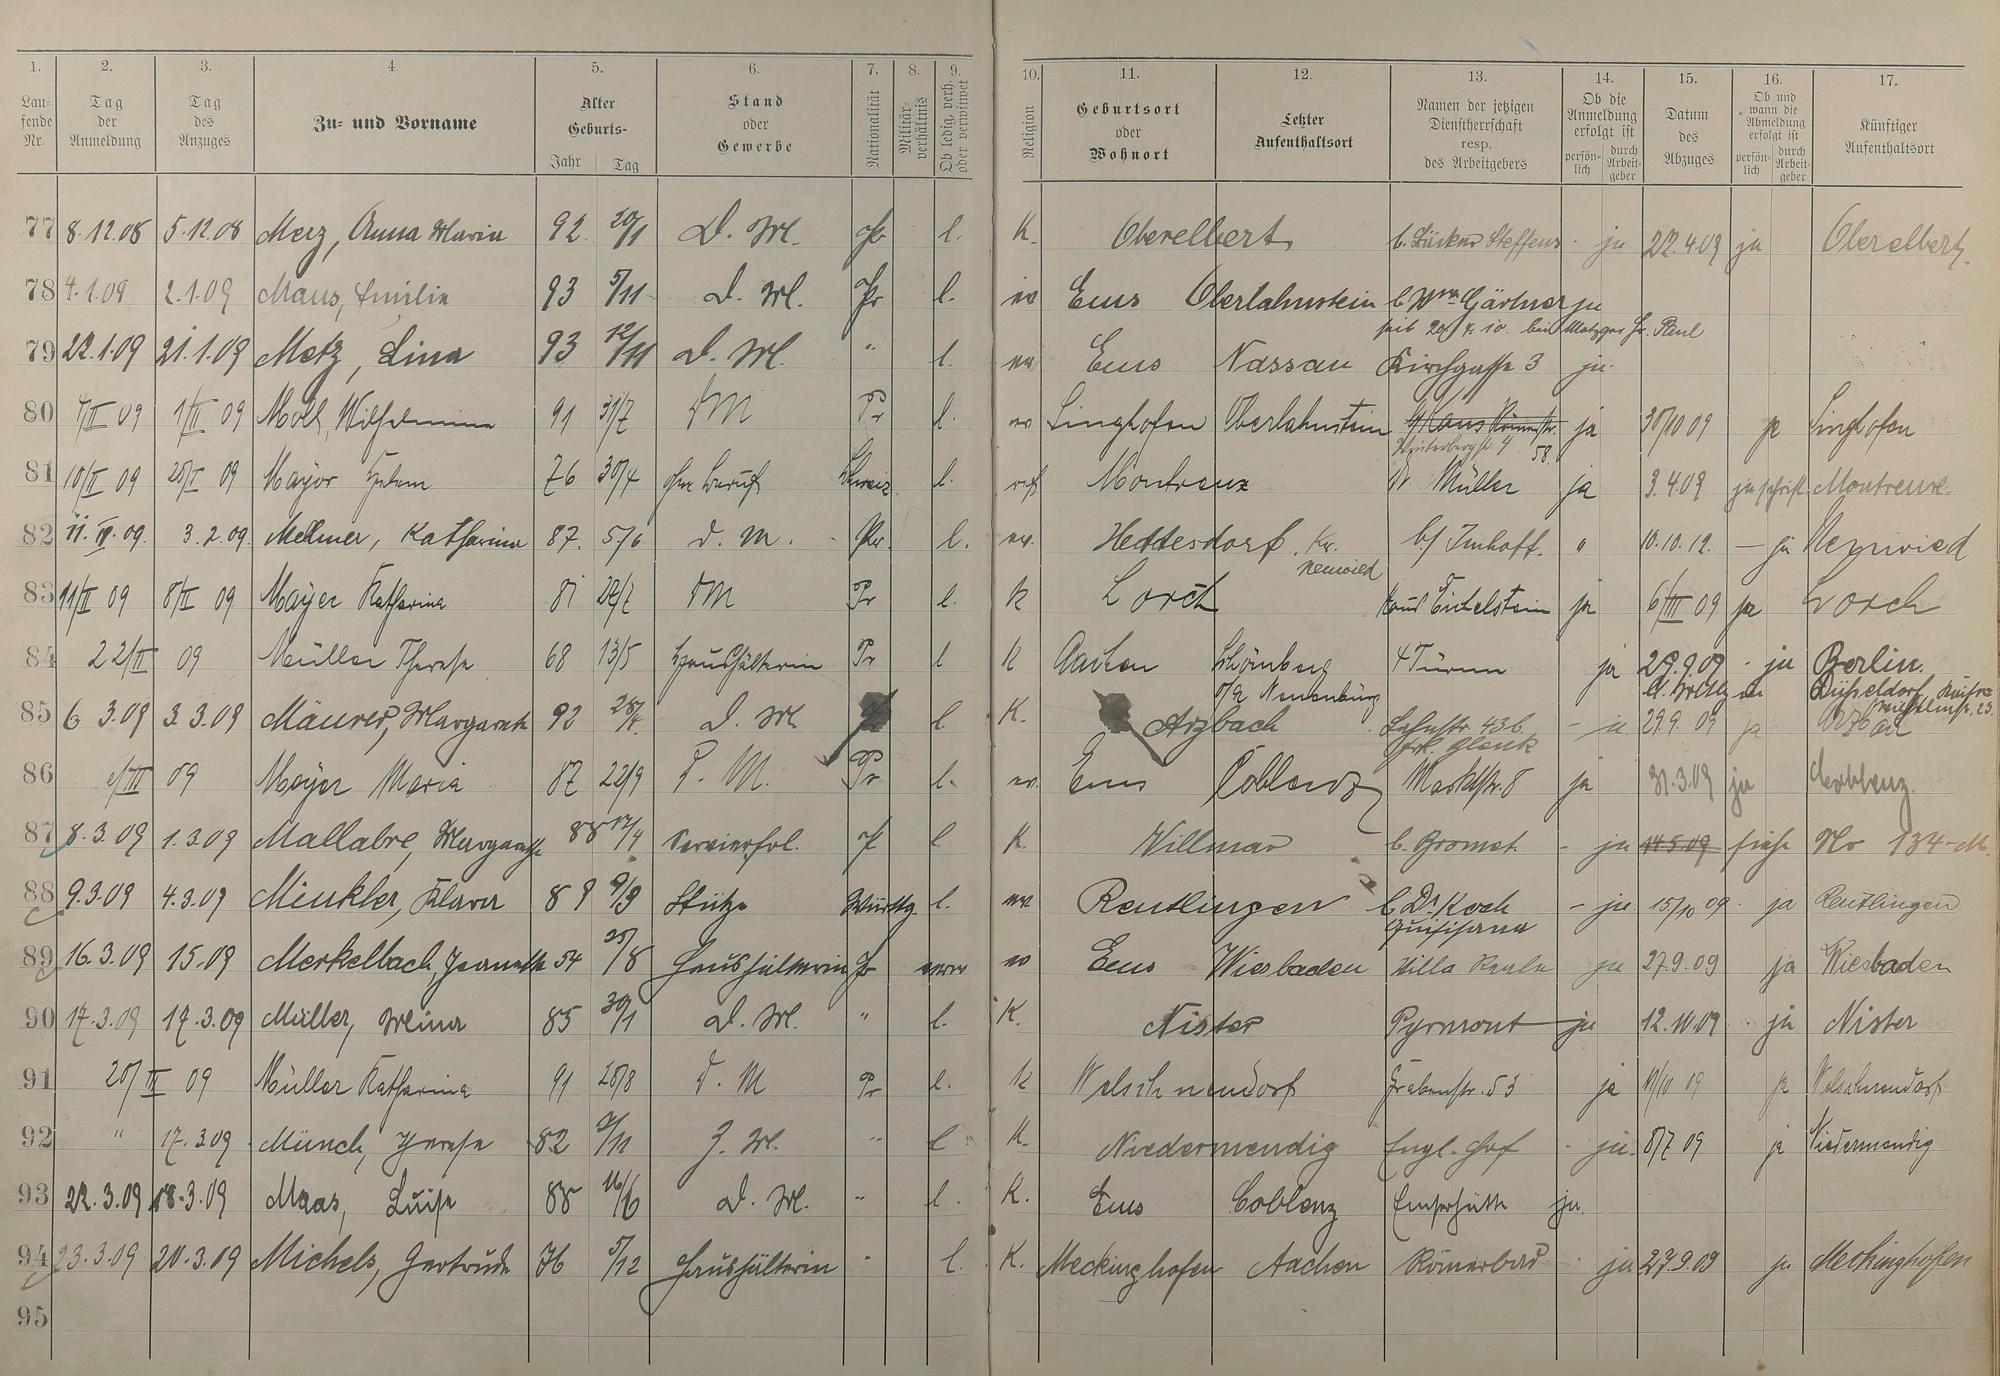 1. 2. 3. 4. 5. 6. 7. 8. 9. 10. 11. 12. 13. 14. 15. 16. 17.
Lau-
fende
Nr.
Tag
der
Anmeldung
Tag
des
Anzuges
Zu- und Vorname
Alter
Geburts-
Jahr Tag
Stand
oder
Gewerbe
Nationalität
Militär-
verhältnis
Ob ledig, verh.
oder verwitwet
Religion
Geburtsort
oder
Wohnort
Letzter
Aufenthaltsort
Namen der jetzigen
Dienstherrschaft
resp.
des Arbeitgebers
Ob die
Anmeldung
erfolgt ist
persön-
lich
durch
Arbeit-
geber
Datum
des
Abzuges
Ob und
wann die
Abmeldung
erfolgt ist
persön-
lich
durch
Arbeit-
geber
Künftiger
Aufenthaltsort
77 8.12.08 5.12.08 Merz, Anna Maria 92 20/1 D. M. Pr l. K. Oberelbert b. Bäcker Steffens - ja 22.4.09 ja Oberelbert.
78 4.1.09 2.1.09 Maus, Emilie 93 5/11 D. M. Pr l. ev Ems Oberlahnstein b Wwe Gärtner ja
79 22.1.09 21.1.09 Metz, Lina 93 12/11 D. M. " l. ev Ems Nassau Kirchgasse 3 ja
80 4/II 09 1/II 09 Moll, Wilhelmine 91 31/7 DM Pr l. ev Singhofen Oberlahnstein ja 30/10 09 ja Singhofen
58.
81 10/II 09 09 Mayor 76 30/4 ohn Beruf Schweiz l. ref Montreux Dr Müller ja 3.4.09 ja schriftl. Montreux.
82 11.II.09. 3.2.09. Mellmer, Katharina 87. 5/6 d. M. Pr. l. ev. Heddesdorf, Kr.
Neuwied b/ Imhoff. " 10.10.12. — ja Neuwied
83 11/II 09 8/II 09 Mayer Katharina 81 DM Pr l. k Lorch ja 6/III 09 ja Lorch
84 22/II 09 Müller Therese 68 13/5 Haushälterin Pr l k Aachen Schömberg
o/a Neuenbürg 4 Türme ja 29.9.09 - ja Berlin.
Düsseldorf,
85 6 3.09 3.3.09 Mäurer, Margareth 92 D. M l. K. Arzbach Lahnstr. 43b. - ja 29.9.09 ja Arzbach
86 /III 09 Mayer Maria 87 22/9 D. M. Pr l. ev. Ems Coblenz Marktstr. 8 ja 31.3.09 ja Coblenz
87 8.3.09 1.3.09 Mallabre, Margareth 88 17/4 Servierfrl. Pr l K. Villmar b. Bromet. - ja 14.5.09 siehe No 134-M.
88 9.3.09 4.3.09 Minkler, Klara 89 9/9 Stütze Württg. l. ev. Reutlingen b Dr. Koch
Quisisana - ja 15/10 09 - ja Reutlingen
89 16.3.09 15.09 Merkelbach, Jeanette 54 25/8 Haushälterin Pr ev Ems Wiesbaden Villa ja 27.9.09 ja Wiesbaden
90 17.3.09 17.3.09 Müller, Meina 85 30/1 D. M. " l. K. Nister Pyrmont ja 12.10.09 - ja Nister
91 20/III 09 Müller Katharina 91 28/8 D. M Pr l. k Welschneudorf Grabenstr. 53 ja 09 ja Welschneudorf
92 " 17.3.09 Münch, Therese 82 /11 Z. M. " l K. Niedermendig Engl. Hof - ja. 8/7 09 ja Niedermendig
93 22.3.09 18.3.09 Maas, Luise 88 16/6 D. M. " l. K. Ems Coblenz Emserhütte ja.
94 23.3.09 20.3.09 Michels, Gertrude 76 5/12 Haushälterin " l. K. Meckinghofen Aachen Römerbad - ja 27.9.09 ja Meckinghofen
95